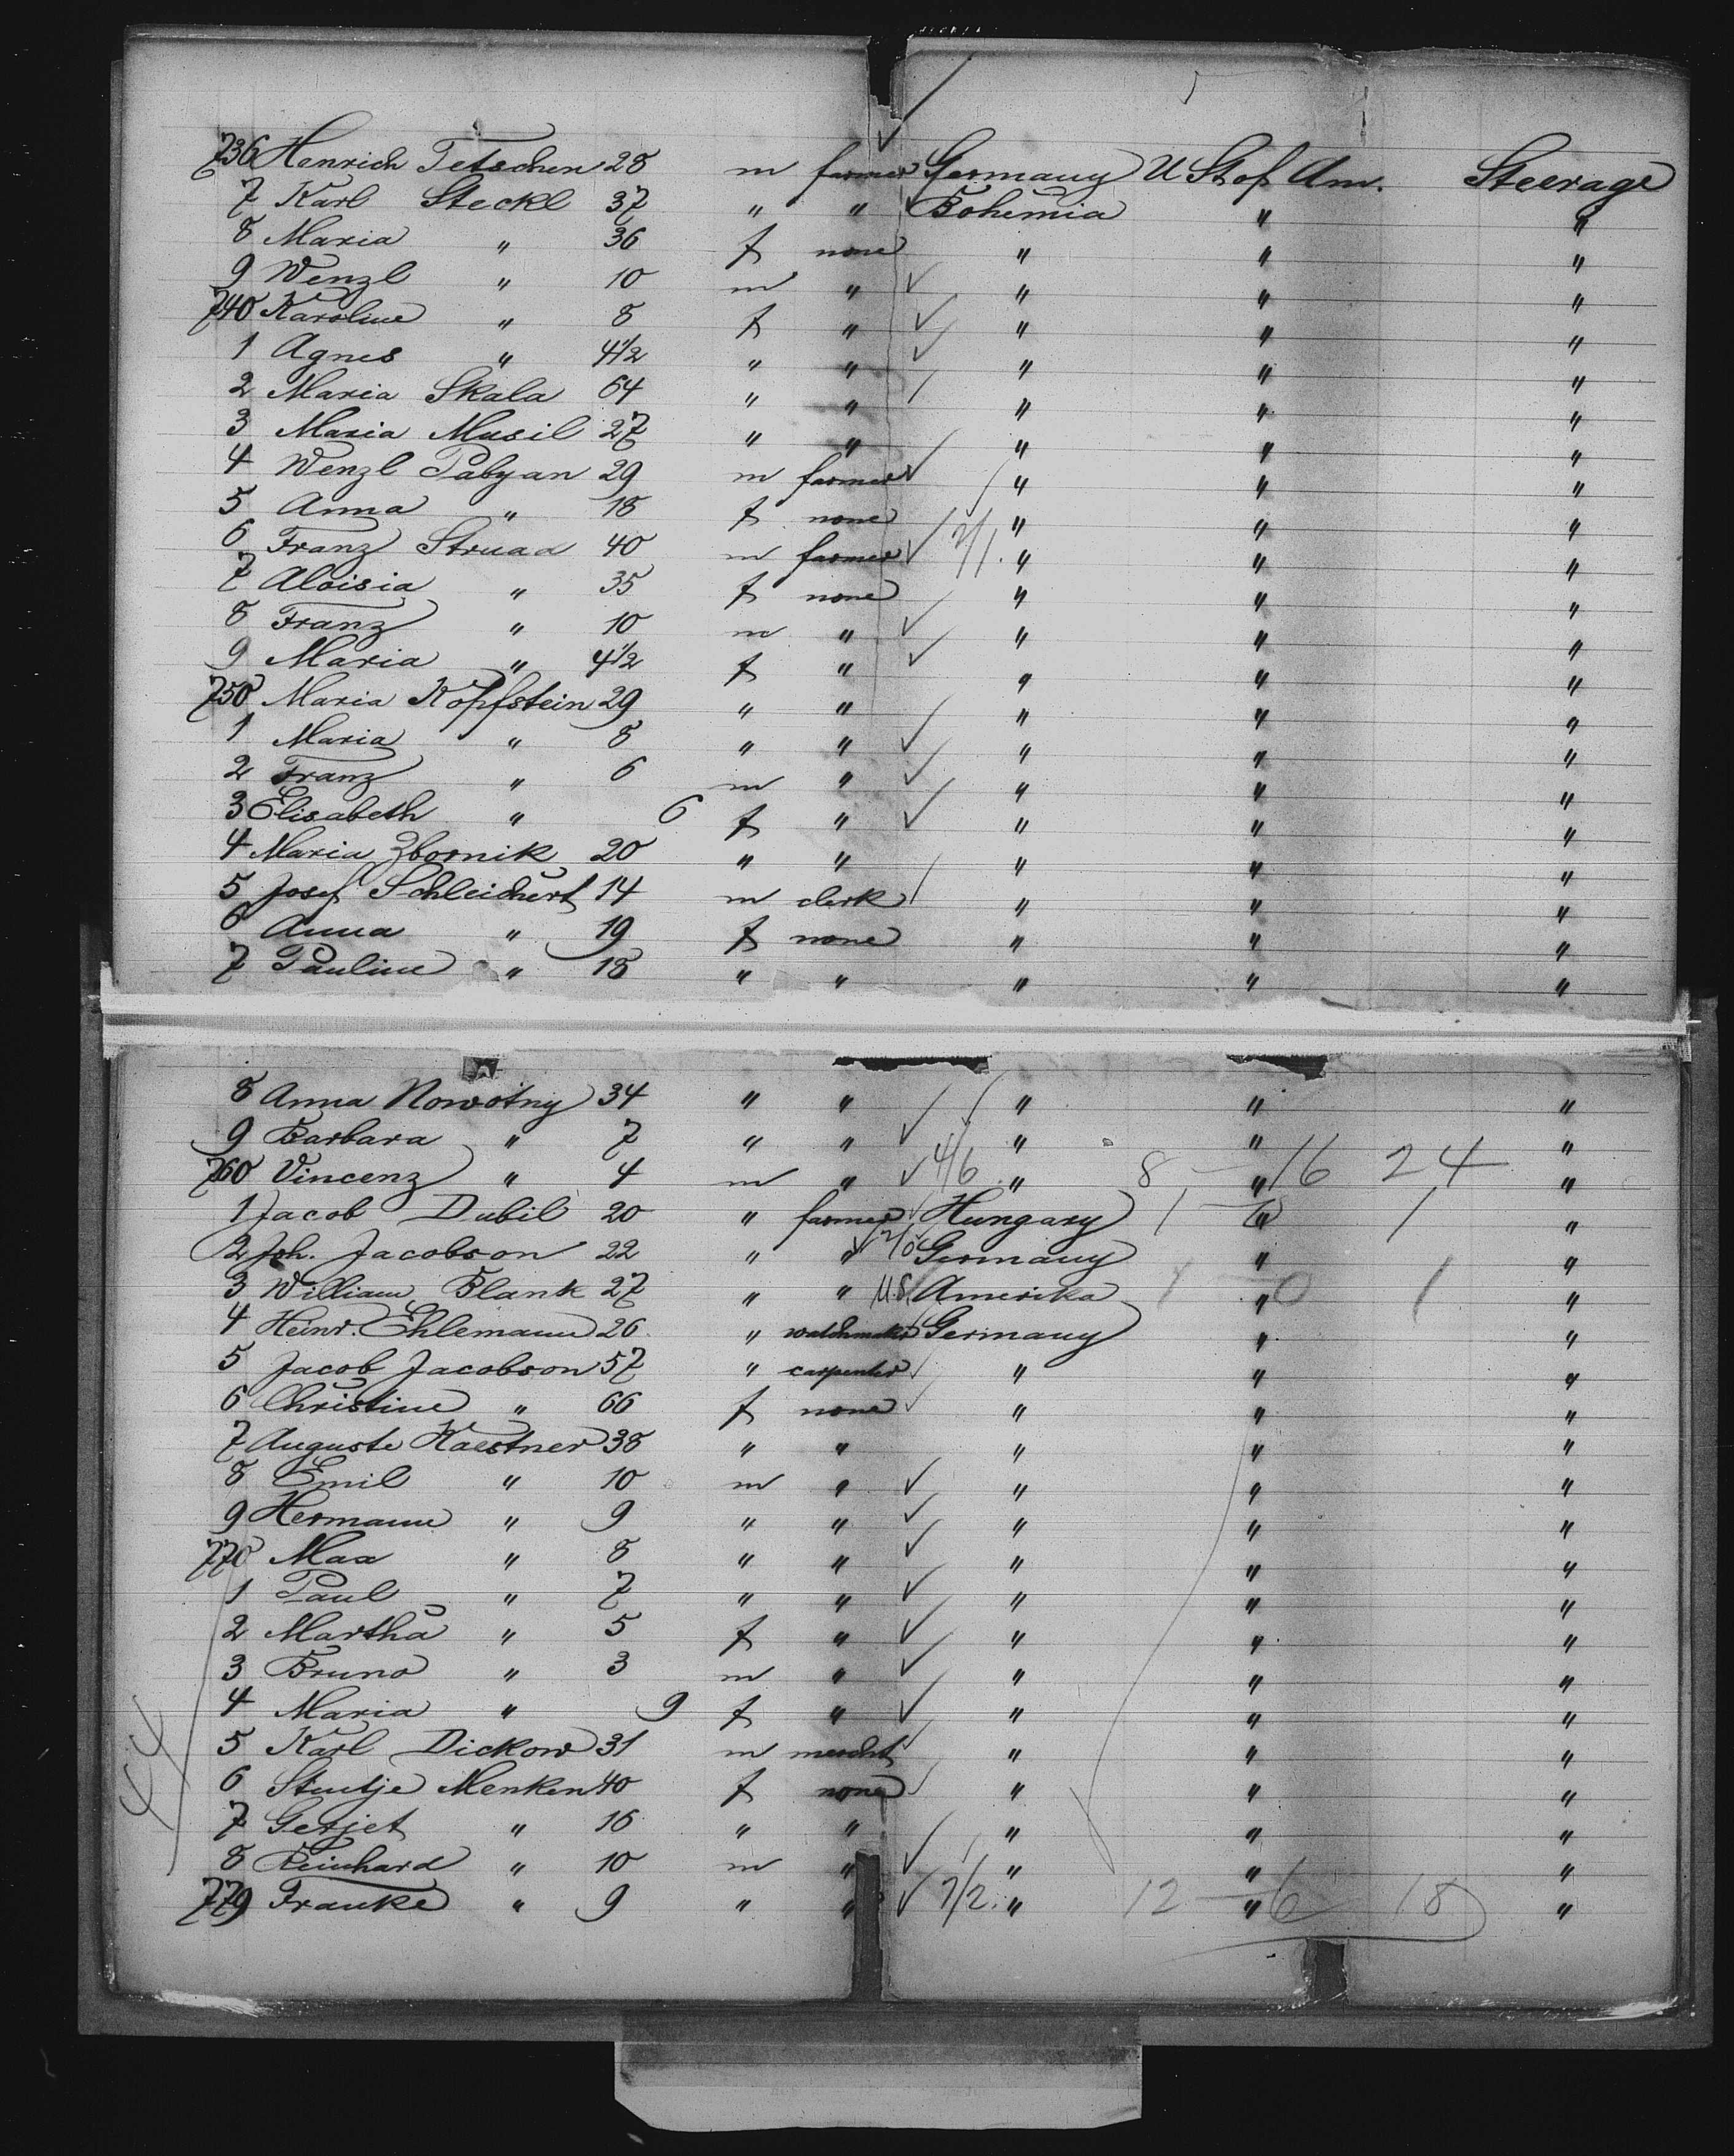 736 Henrich Tetschen 28 m farmer Germany U St of Am. Steerage
7 Karl Steckl 37 " " Bohemia " "
8 Maria " 36 f none " " "
9 Wenzl " 10 m " " " "
740 Karoline " 8 f " " " "
1 Agnes " 4 1/2 " " " " "
2 Maria Skala 64 " " " " "
3 Maria Musil 27 " " " " "
4 Wenzl Pabyan 29 m farmer " " "
5 Anna " 18 f none " " "
6 Franz Struad 40 m farmer 2/1. " " "
7 Aloisia " 35 f none " " "
8 Franz " 10 m " " " "
9 Maria " 4 1/2 f " " " "
750 Maria Köpfstein 29 " " " " "
1 Maria " 8 " " " " "
2 Franz " 6 m " " " "
3 Elisabeth " 6 f " " " "
4 Maria Zbornik 20 " " " " "
5 Josef Schleichert 14 m clerk " " "
6 Anna " 19 f none " " "
7 Pauline " 18 " " " " "
8 Anna Nowotny 34 " " " " "
9 Barbara " 7 " " " " "
760 Vincenz " 4 m " 4/6 " 8 — 16 " 24 "
1 Jacob Dubil 20 " farmer Hungary 1 — " 1 "
2 Joh. Jacobson 22 " " 2/0 Germany " "
3 William Blank 27 " " U.S. Amerika 1 — 0 " 1 "
4 Heinr. Ehlemann 26 " watchmaker Germany " "
5 Jacob Jacobson 57 " carpenter " " "
6 Christine " 66 f none " " "
7 Auguste Kaestner 38 " " " " "
8 Emil " 10 m " " " "
9 Hermann " 9 " " " " "
770 Max " 8 " " " " "
1 Paul " 7 " " " " "
2 Martha " 5 f " " " "
3 Bruno " 3 m " " " "
4 Maria " 9 f " " " "
5 Karl Dickow 31 m mercht " " "
6 Stintje Menken 40 f none " " "
7 Gerjet " 16 " " " " "
8 Reinhard " 10 m " " " "
779 Frauke " 9 " " 7/2. " 12 — 6 " 18 "
44